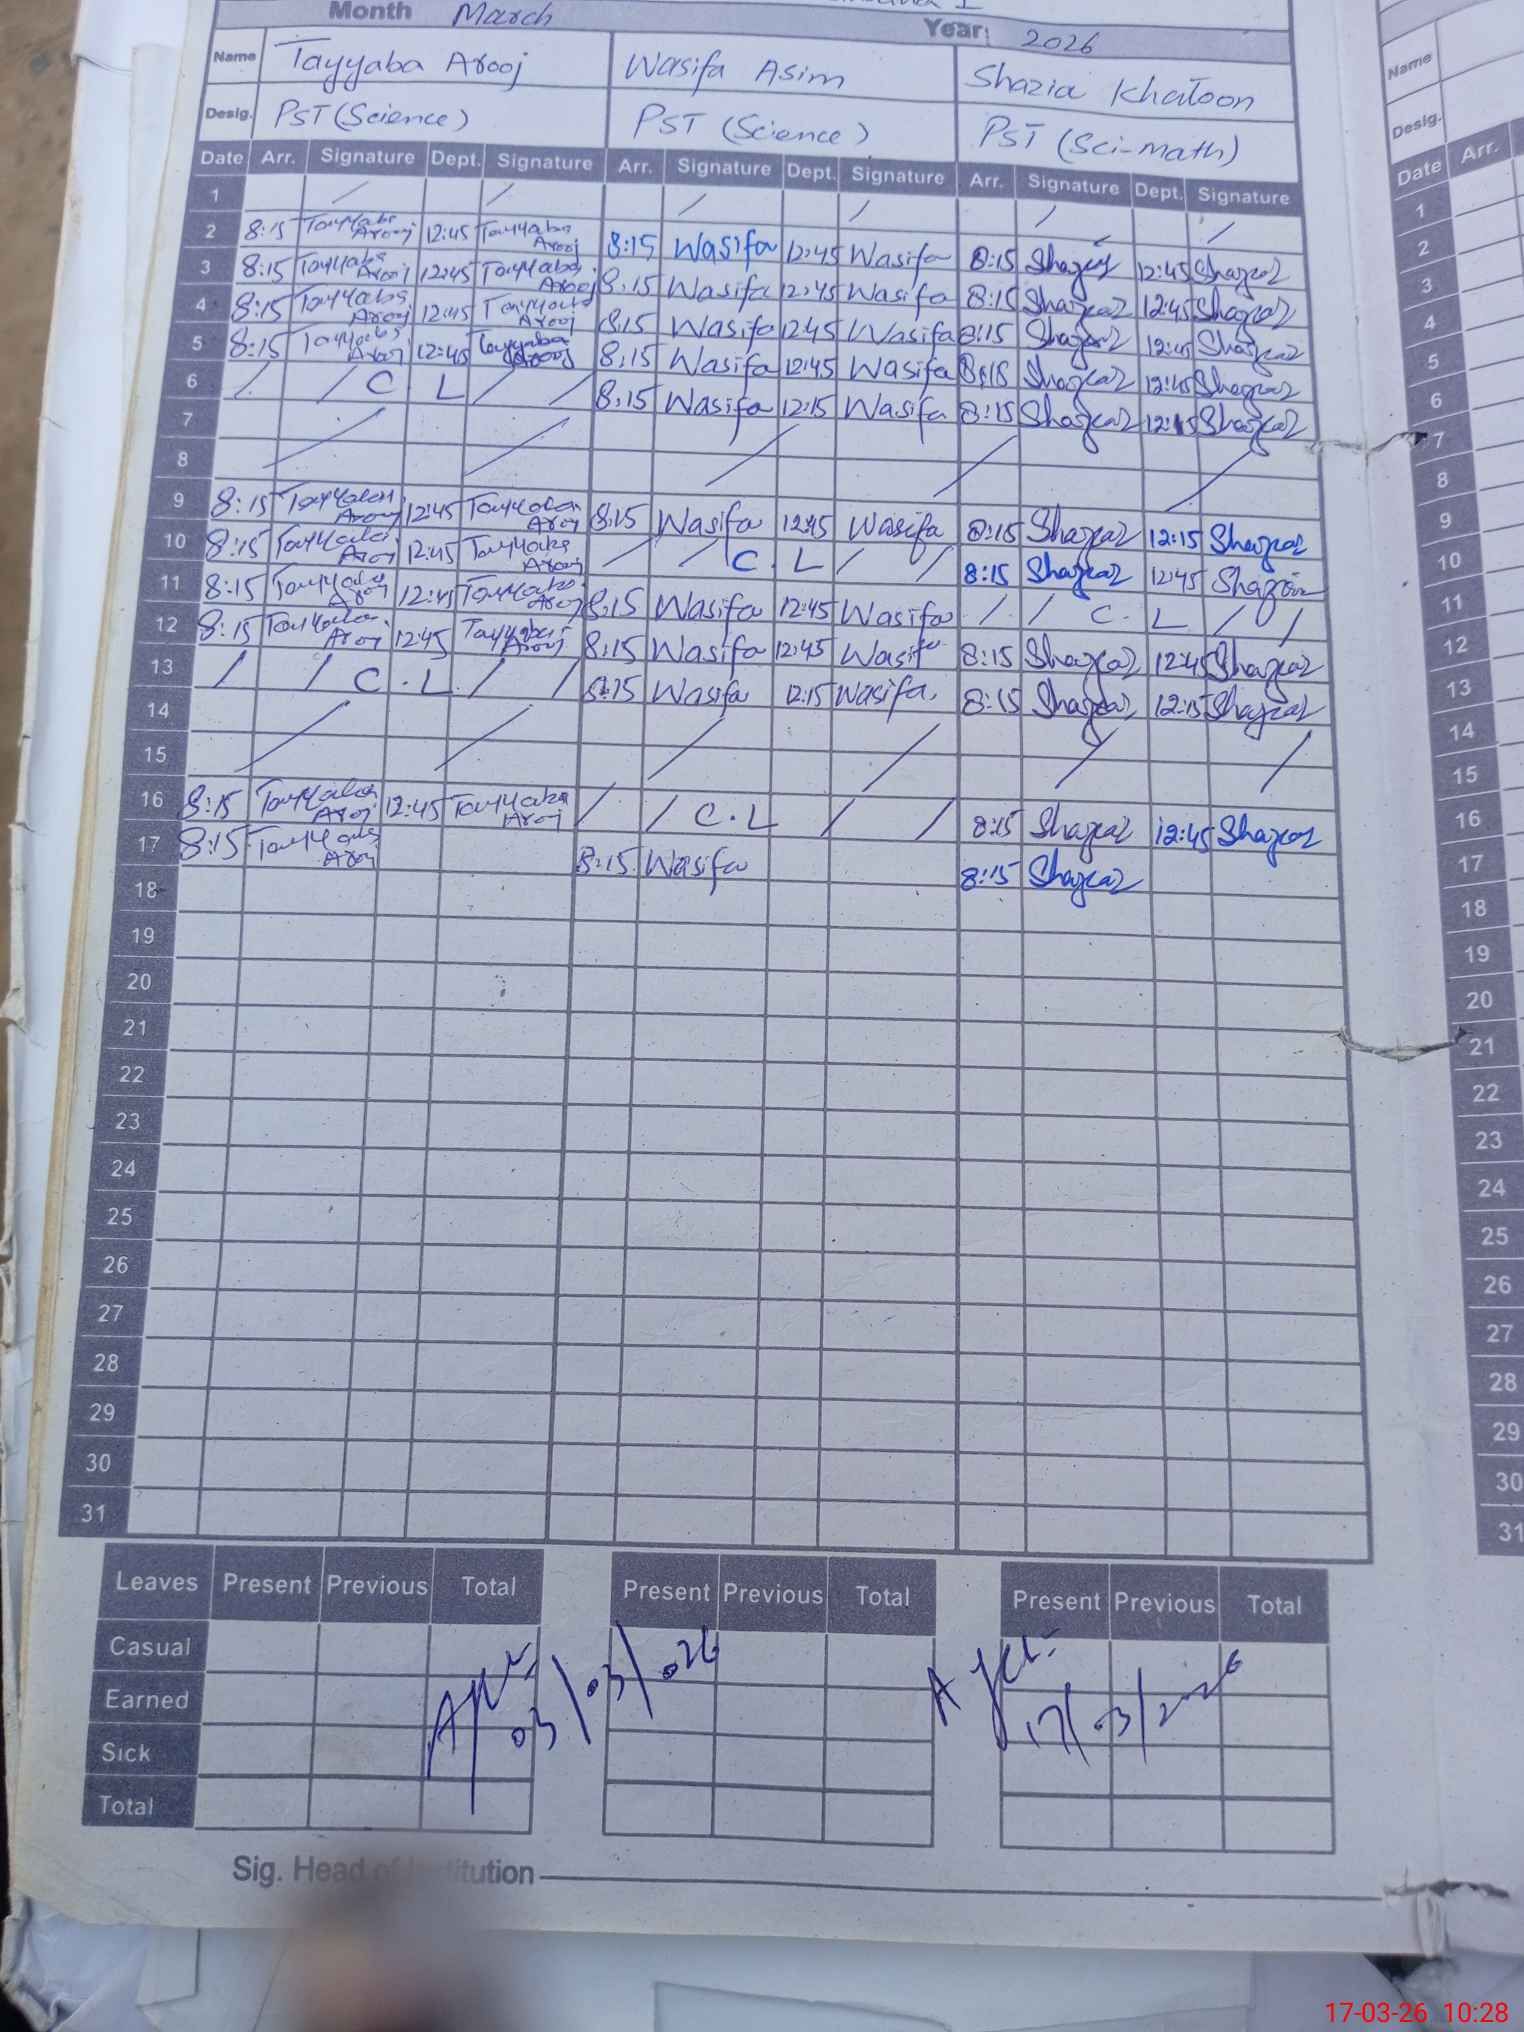 Month March Year: 2026
Name Tayyaba Arooj Wasifa Asim Shazia Khatoon Name
Desig. PST (Science) PST (Science) PST (Sci-math) Desig.
Date Arr. Signature Dept. Signature Arr. Signature Dept. Signature Arr. Signature Dept. Signature Date Arr.
1 / / / / / / 1
2 8:15 Tayyaba Arooj 12:45 Tayyaba Arooj 8:15 Wasifa 12:45 Wasifa 8:15 12:45 2
3 8:15 Tayyaba Arooj 12:45 Tayyaba Arooj 8:15 Wasifa 12:45 Wasifa 8:15 12:45 3
4 8:15 Tayyaba Arooj 12:45 Tayyaba Arooj 8:15 Wasifa 12:45 Wasifa 8:15 12:45 4
5 8:15 Tayyaba Arooj 12:45 Tayyaba Arooj 8:15 Wasifa 12:45 Wasifa 8:15 12:45 5
6 / / C L / / 8:15 Wasifa 12:15 Wasifa 8:15 12:15 6
7 / / / / / / 7
8 8
9 8:15 Tayyaba Arooj 12:45 Tayyaba Arooj 8:15 Wasifa 12:45 Wasifa 8:15 12:15 9
10 8:15 Tayyaba Arooj 12:45 Tayyaba Arooj / / C. L / / 8:15 12:45 10
11 8:15 Tayyaba Arooj 12:45 Tayyaba Arooj 8:15 Wasifa 12:45 Wasifa / / C. L / / 11
12 8:15 Tayyaba Arooj 12:45 Tayyaba Arooj 8:15 Wasifa 12:45 Wasifa 8:15 12:45 12
13 / / C. L / / 8:15 Wasifa 12:15 Wasifa 8:15 12:15 13
14 / / / / / / 14
15 15
16 8:15 Tayyaba Arooj 12:45 Tayyaba Arooj / / C.L / / 8:15 12:45 16
17 8:15 Tayyaba Arooj 8:15 Wasifa 8:15 17
18 18
19 19
20 20
21 21
22 22
23 23
24 24
25 25
26 26
27 27
28 28
29 29
30 30
31 31
Leaves Present Previous Total Present Previous Total Present Previous Total
Casual
Earned
Sick
Total
03/03/026
17/03/2026
Sig. Head of Institution
17-03-26 10:28